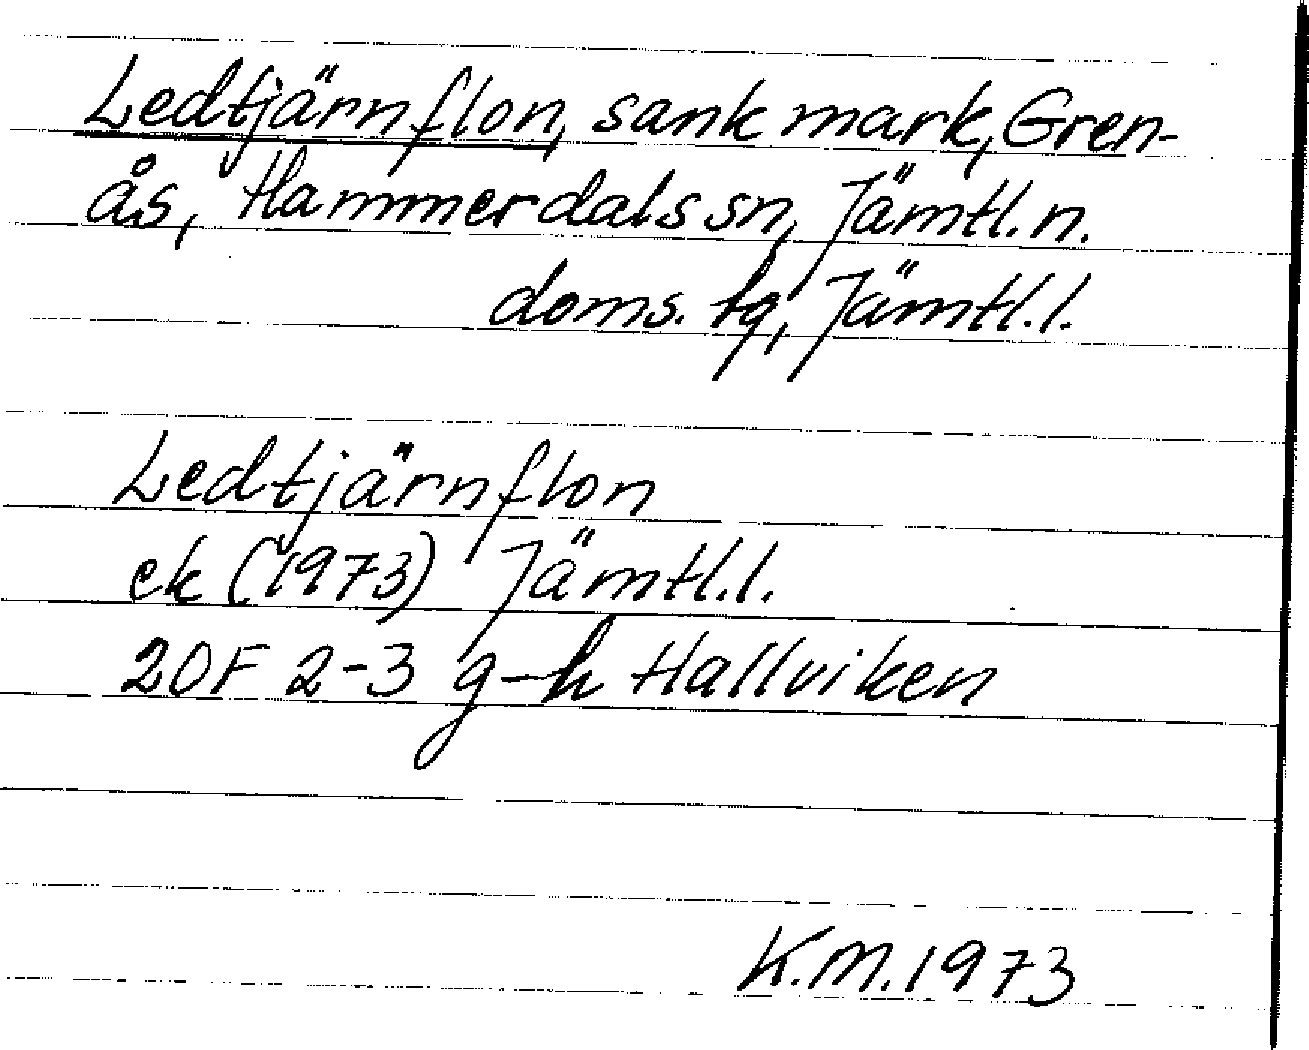 Ledtjärnflon, sank mark, Gren-
ås, Hammerdals sn, Jämtl. n.
doms. tg, Jämtl. l.
Ledtjärnflon
ek (1973) Jämtl. l.
20F 2-3 g-h Hallviken
K.M. 1973